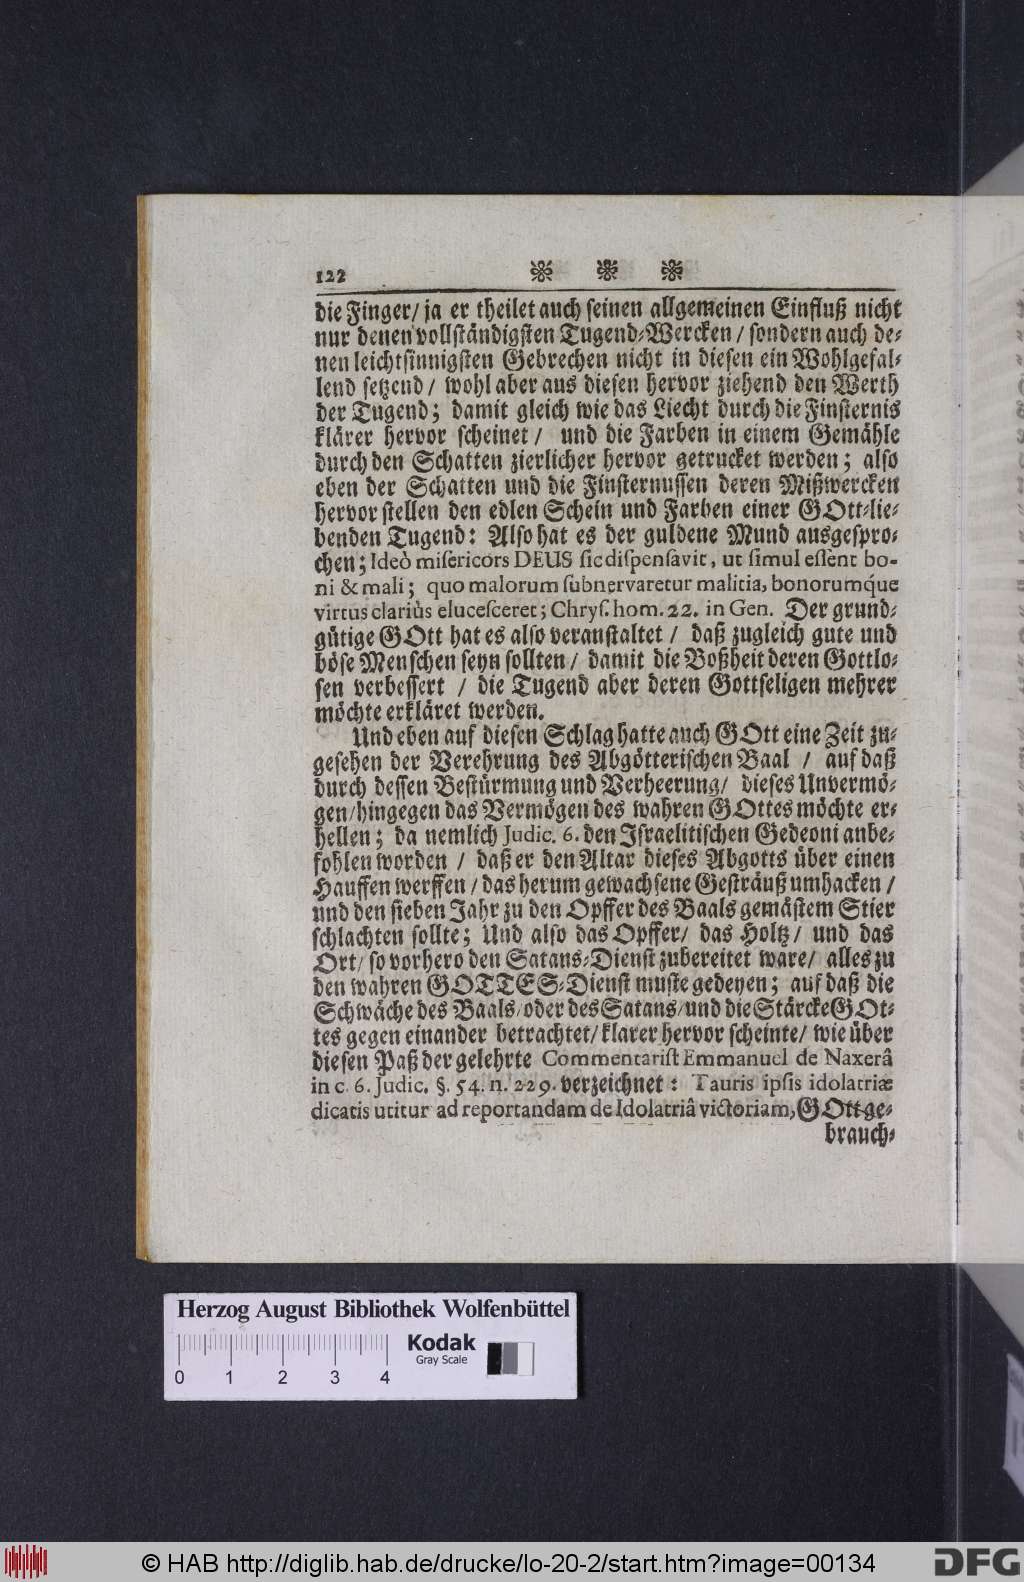 122
die Finger/ ja er theilet auch seinen allgemeinen Einfluß nicht
nur denen vollständigsten Tugend-Wercken/ sondern auch de-
nen leichtsinnigsten Gebrechen nicht in diesen ein Wohlgefal-
lend setzend/ wohl aber aus diesen hervor ziehend den Werth
der Tugend; damit gleich wie das Liecht durch die Finsternis
klärer hervor scheinet/ und die Farben in einem Gemähle
durch den Schatten zierlicher hervor getrucket werden; also
eben der Schatten und die Finsternussen deren Mißwercken
hervor stellen den edlen Schein und Farben einer GOtt-lie-
benden Tugend: Also hat es der guldene Mund ausgespro-
chen; Ideò misericors DEUS sic dispensavit, ut simul essent bo-
ni & mali; quo malorum subnervaretur malitia, bonorumq́ue
virtus clariùs elucesceret; Chrys. hom. 22. in Gen. Der grund-
gütige GOtt hat es also veranstaltet/ daß zugleich gute und
böse Menschen seyn sollten/ damit die Boßheit deren Gottlo-
sen verbessert/ die Tugend aber deren Gottseligen mehrer
möchte erkläret werden.
Und eben auf diesen Schlag hatte auch GOtt eine Zeit zu-
gesehen der Verehrung des Abgötterischen Baal/ auf daß
durch dessen Bestürmung und Verheerung/ dieses Unvermö-
gen/ hingegen das Vermögen des wahren GOttes möchte er-
hellen; da nemlich Judic. 6. den Israelitischen Gedeoni anbe-
fohlen worden/ daß er den Altar dieses Abgotts über einen
Hauffen werffen/ das herum gewachsene Gesträuß umhacken/
und den sieben Jahr zu den Opffer des Baals gemästem Stier
schlachten sollte; Und also das Opffer/ das Holtz/ und das
Ort/ so vorhero den Satans-Dienst zubereitet ware/ alles zu
den wahren GOTTES-Dienst muste gedeyen; auf daß die
Schwäche des Baals/ oder des Satans/ und die Stärcke GOt-
tes gegen einander betrachtet/ klarer hervor scheinte/ wie über
diesen Paß der gelehrte Commentarist Emmanuel de Naxerâ
in c. 6. Judic. §. 54. n. 229. verzeichnet: Tauris ipsis idolatriæ
dicatis utitur ad reportandam de Idolatriâ victoriam, GOtt ge-
brauch-
Herzog August Bibliothek Wolfenbüttel
Kodak
Gray Scale
0 1 2 3 4
© HAB http://diglib.hab.de/drucke/lo-20-2/start.htm?image=00134
DFG